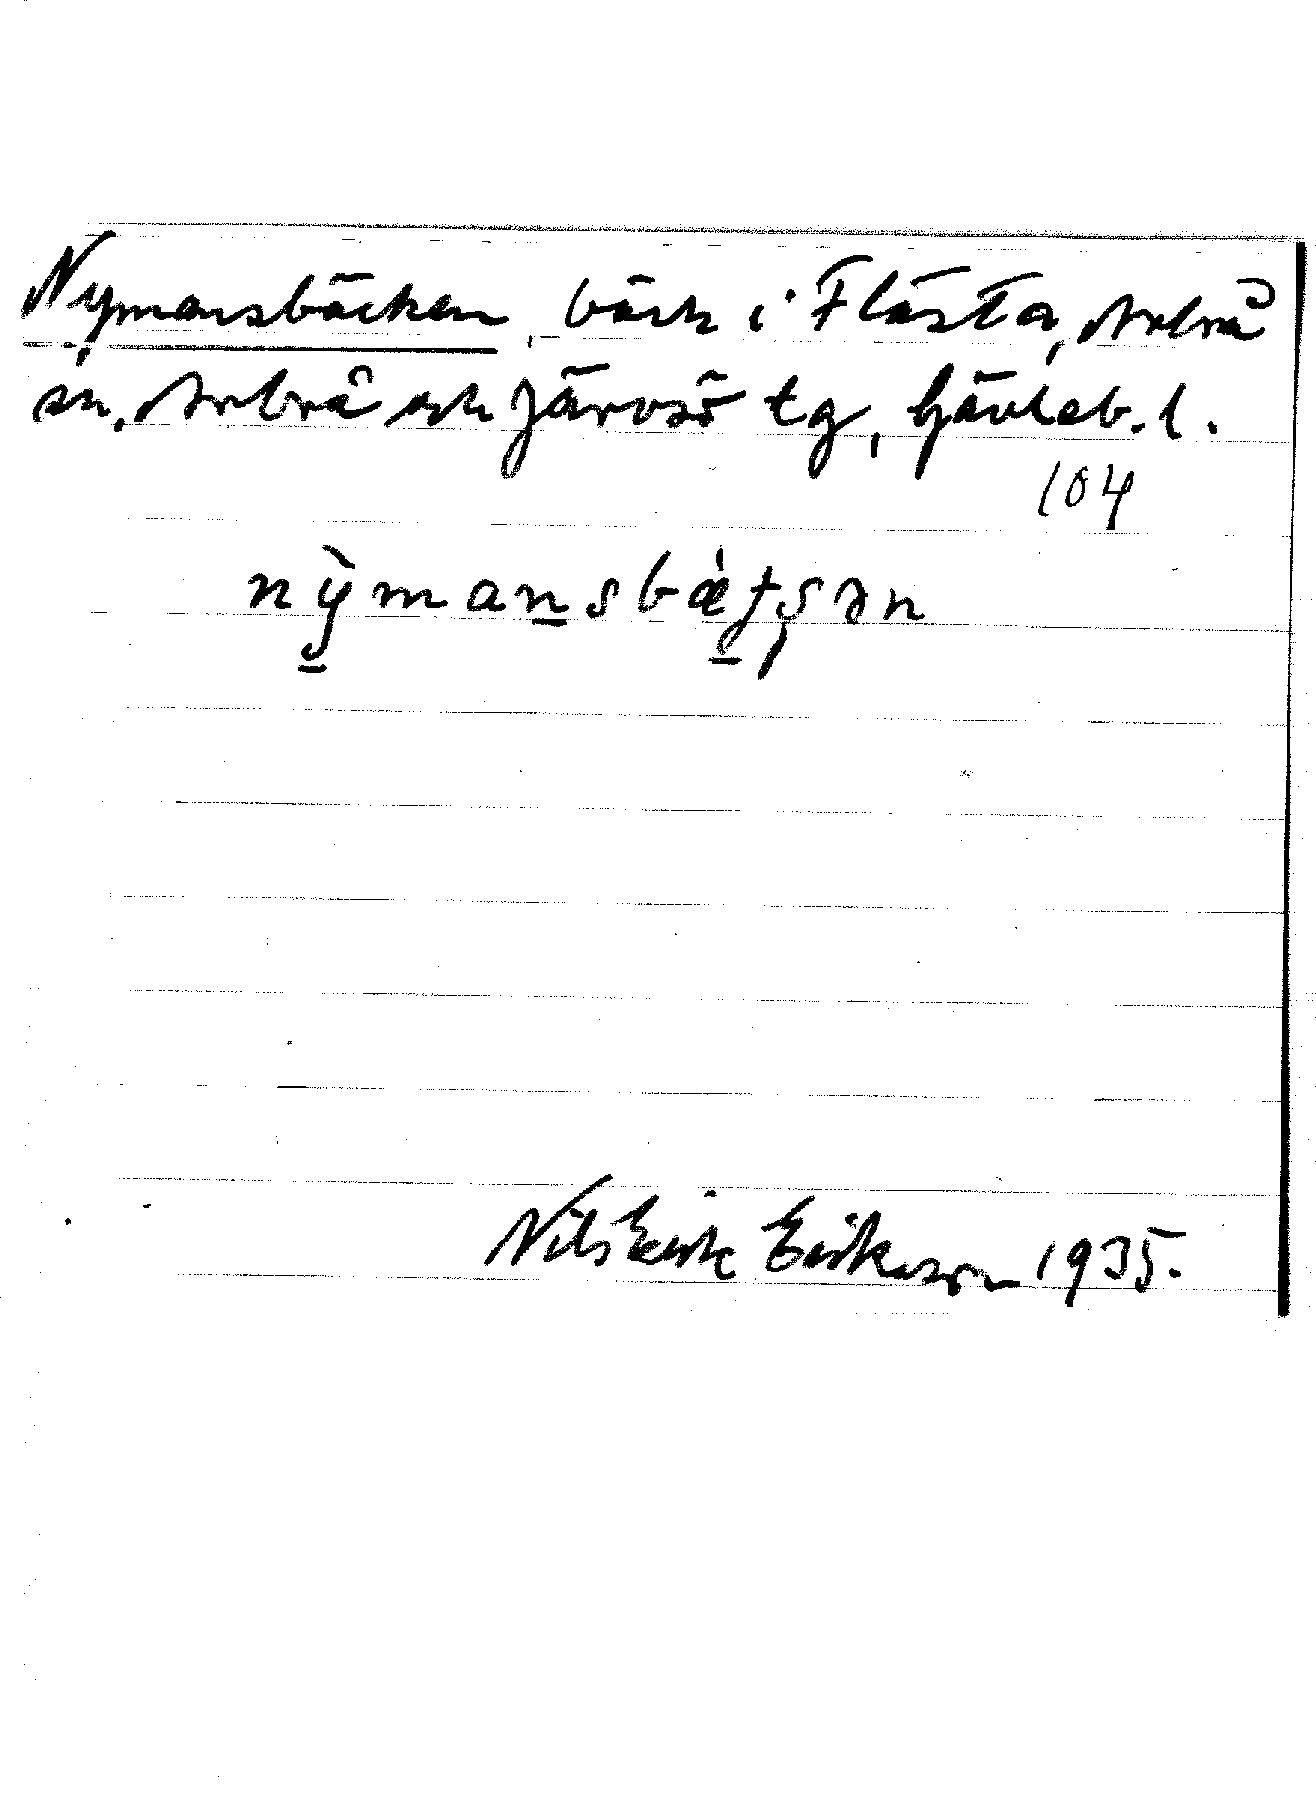 Nymansbäcken, bäck i Flästa, Arbrå
sn, Arbrå och Järvsö tg, Gävleb. l.
104
nỳ̱mans̱bæ̀ţʂən
Nils Erik Eriksson 1935.